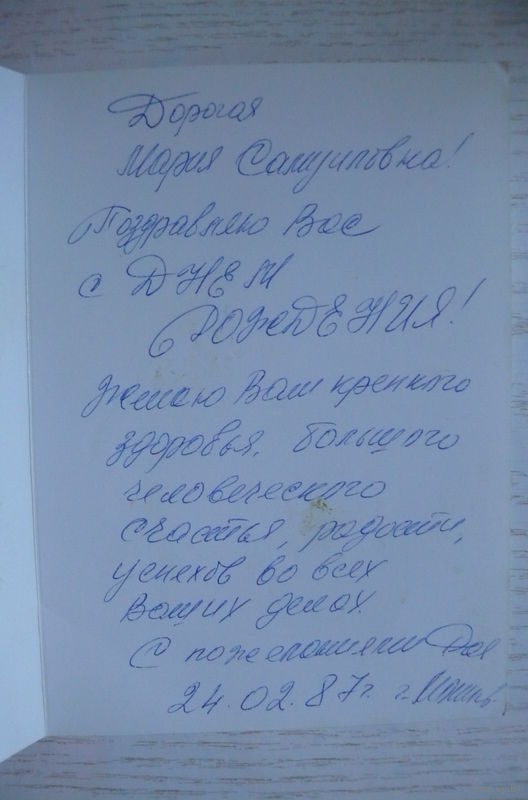 Дорогая
Мария Самуиловна!
Поздравляю Вас
с ДНЕМ
РОЖДЕНИЯ!
Желаю Вам крепкого
здоровья, большого
человеческого
счастья, радости,
успехов во всех
Ваших делах.
С пожеланиями
24.02.87г. г. Минск